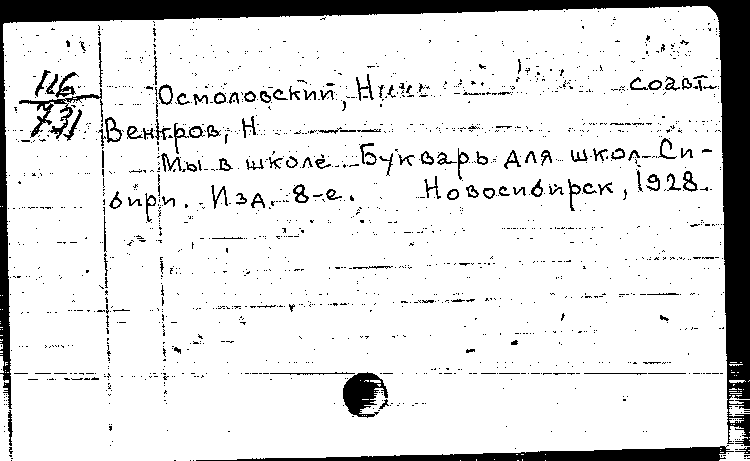 116
731
Осмоловский, Н соавт.
Венгров, Н
Мы в школе. Букварь для школ Си-
бири. Изд. 8-е. Новосибирск, 1928.